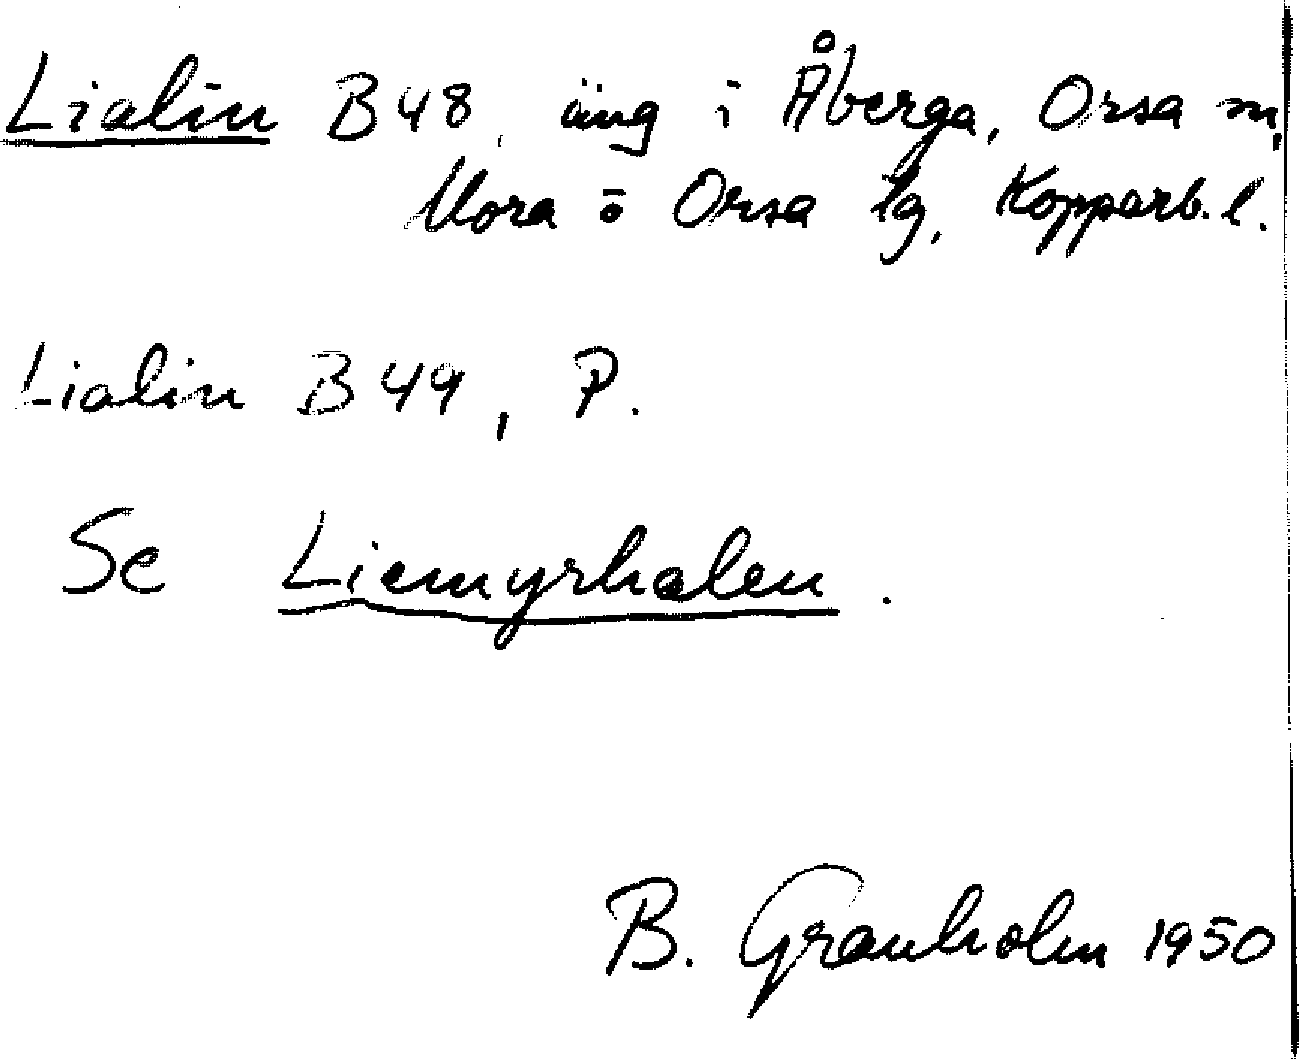 Lialin B48, äng i Åberga, Orsa sn,
Mora o Orsa tg, Kopparb. l.
Lialin B49, P.
Se Liemyrhalen.
B. Granholm 1950